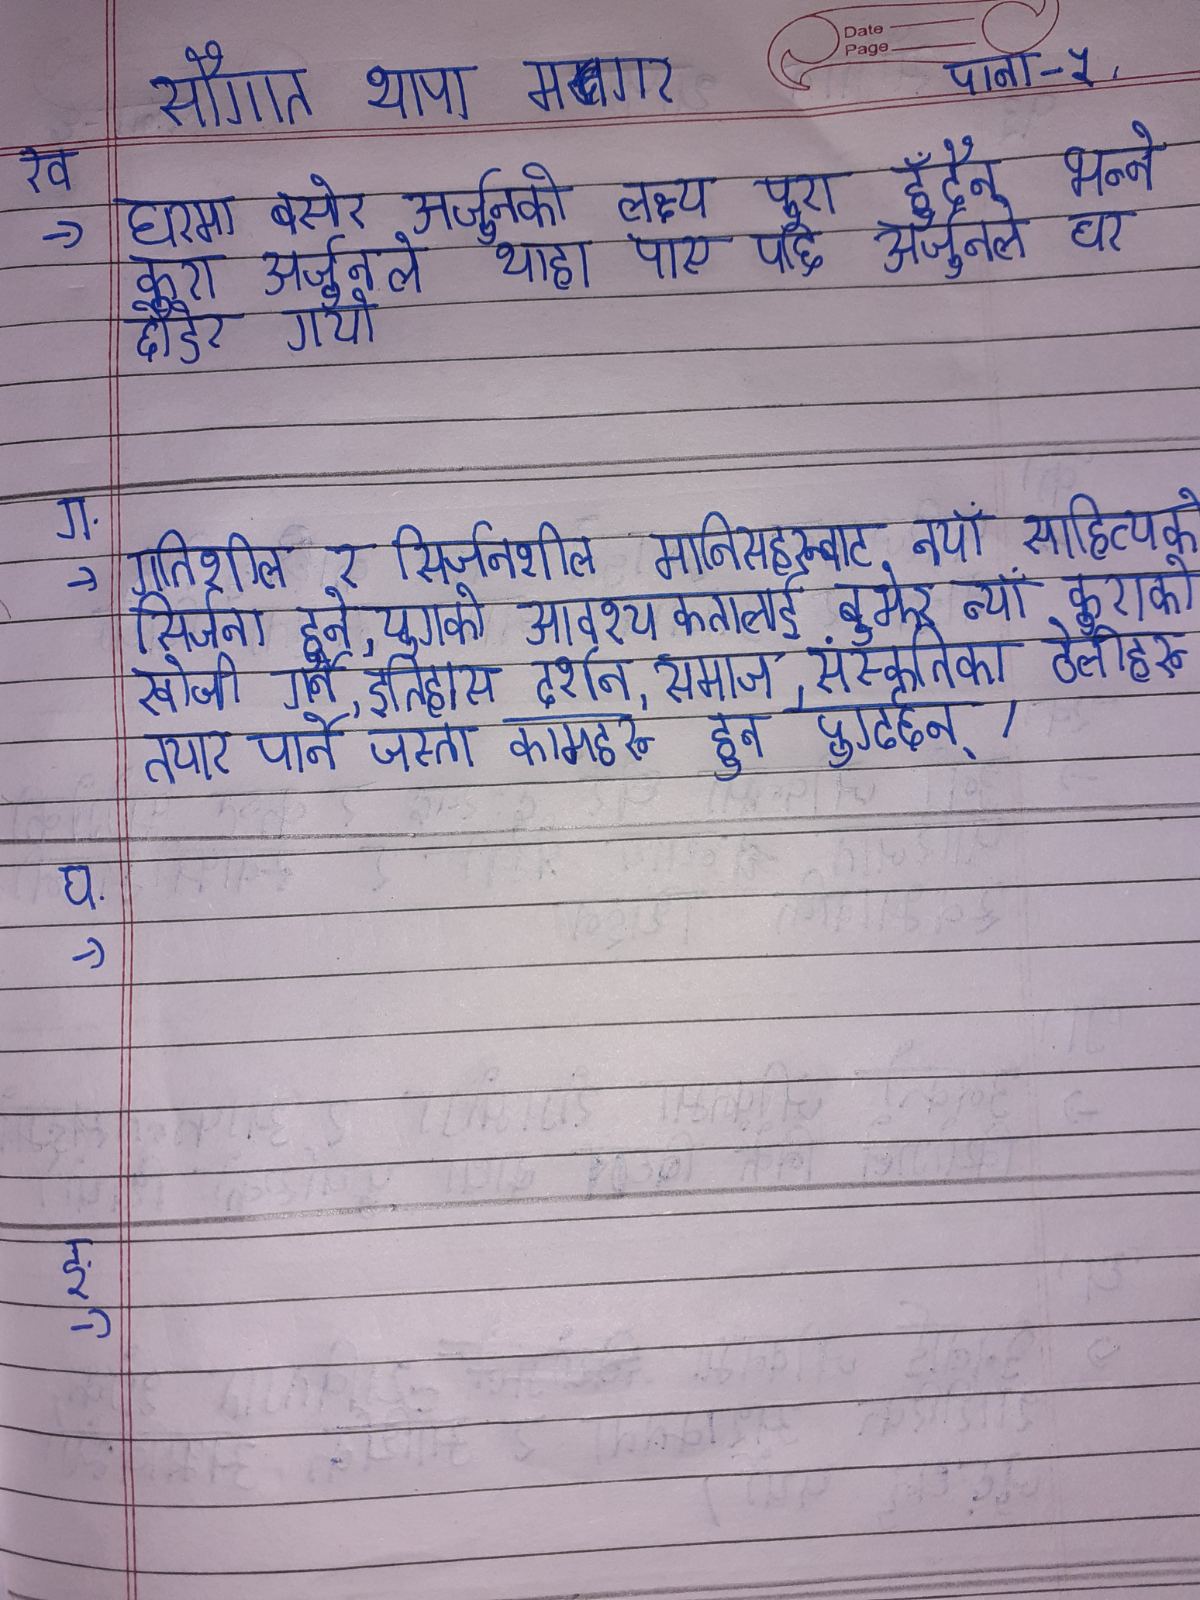 Date
Page
सौगात थापा मगर
पाना-५,
ख
→ घरमा बसेर अर्जुनको लक्ष्य पुरा हुँदैन भन्ने
कुरा अर्जुनले थाहा पाए पछि अर्जुनले घर
छोडेर गयो
ग.
→ गतिशील र सिर्जनशील मानिसहरूबाट नयाँ साहित्यको
सिर्जना हुने, युगको आवश्यकतालाई बुझेर न्याँ कुराको
खोजी गर्ने, इतिहास दर्शन, समाज, संस्कृतिका ठेलीहरू
तयार पार्ने जस्ता कामहरू हुन पुग्दछन् ।
घ.
→
ङ.
→